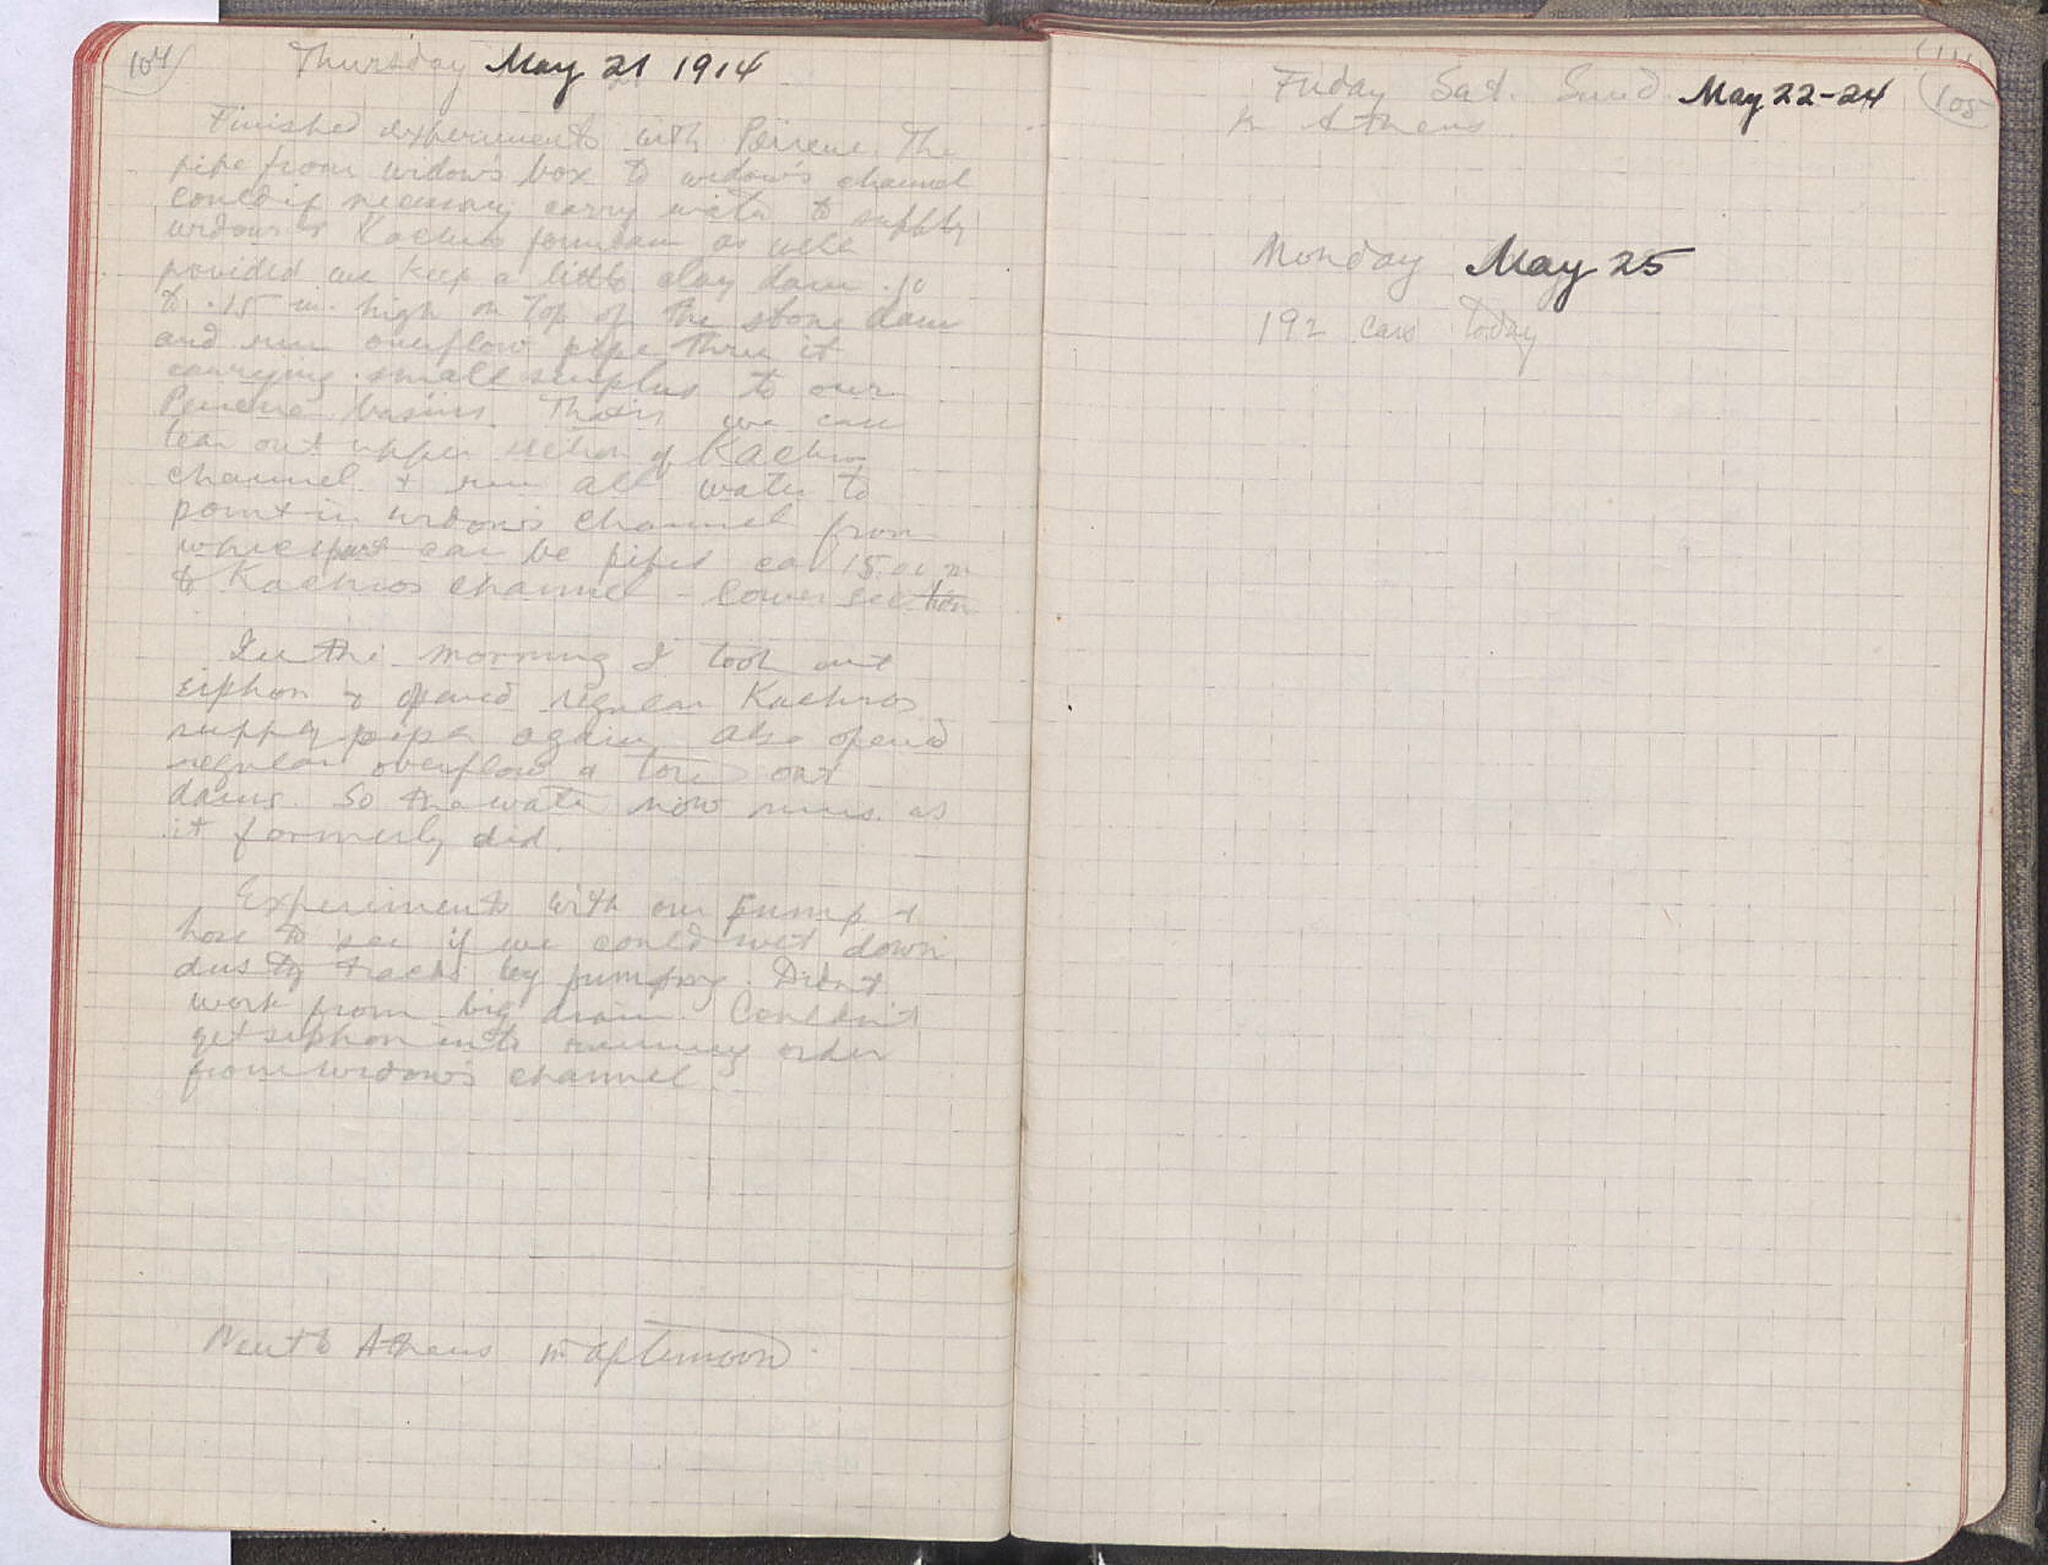 104
Thursday May 21 1914
Finished experiments with Peirene. The
pipe from widow's box to widow's channel
could if necessary carry water to supply
widow's & Kachros fountain as well
provided we keep a little clay dam .10
to .15 m. high on top of the stone dam
and run overflow pipe thru it
carrying small surplus to our
Peirene basins. That is, we can
tear out upper section of Kachros
channel & run all water to
point in widow's channel from
which part can be piped ca 15.00 m
to Kachros channel - lower section
In the morning I took out
siphon & opened regular Kachros
supply pipe again. Also opened
regular overflow & tore out
dams. So the water now runs as
it formerly did.
Experiments with our pump &
hose to see if we could wet down
dusty tracks by pumping. Didn't
work from big drain. Couldn't
get siphon into running order
from widow's channel.
Went to Athens in afternoon.
105
Friday Sat. Sund. May 22-24
In Athens
Monday May 25
192 cars today